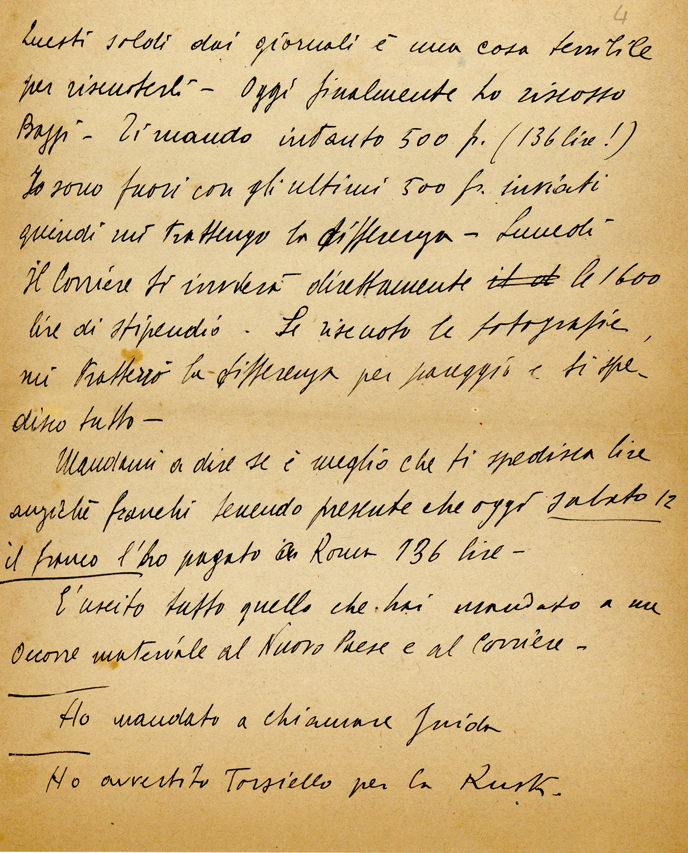 4
Questi soldi dai giornali è una cosa terribile
per riscuoterli - Oggi finalmente ho riscosso
Bazzi - Ti mando intanto 500 fr. (136 lire!)
Io sono fuori con gli ultimi 500 fr. inviati
quindi mi trattengo la differenza - Lunedì
il Corriere ti invierà direttamente it d le 1600
lire di stipendio. Se riscuoto le fotografie,
mi tratterrò la differenza per pareggio e ti spe-
disco tutto -
Mandami a dire se è meglio che ti spedisca lire
anziché franchi tenendo presente che oggi sabato 12
il franco l'ho pagato a Roma 136 lire -
E' uscito tutto quello che hai mandato a me
Occorre materiale al Nuovo Paese e al Corriere -
Ho mandato a chiamare Guida
Ho avvertito Torsiello per la